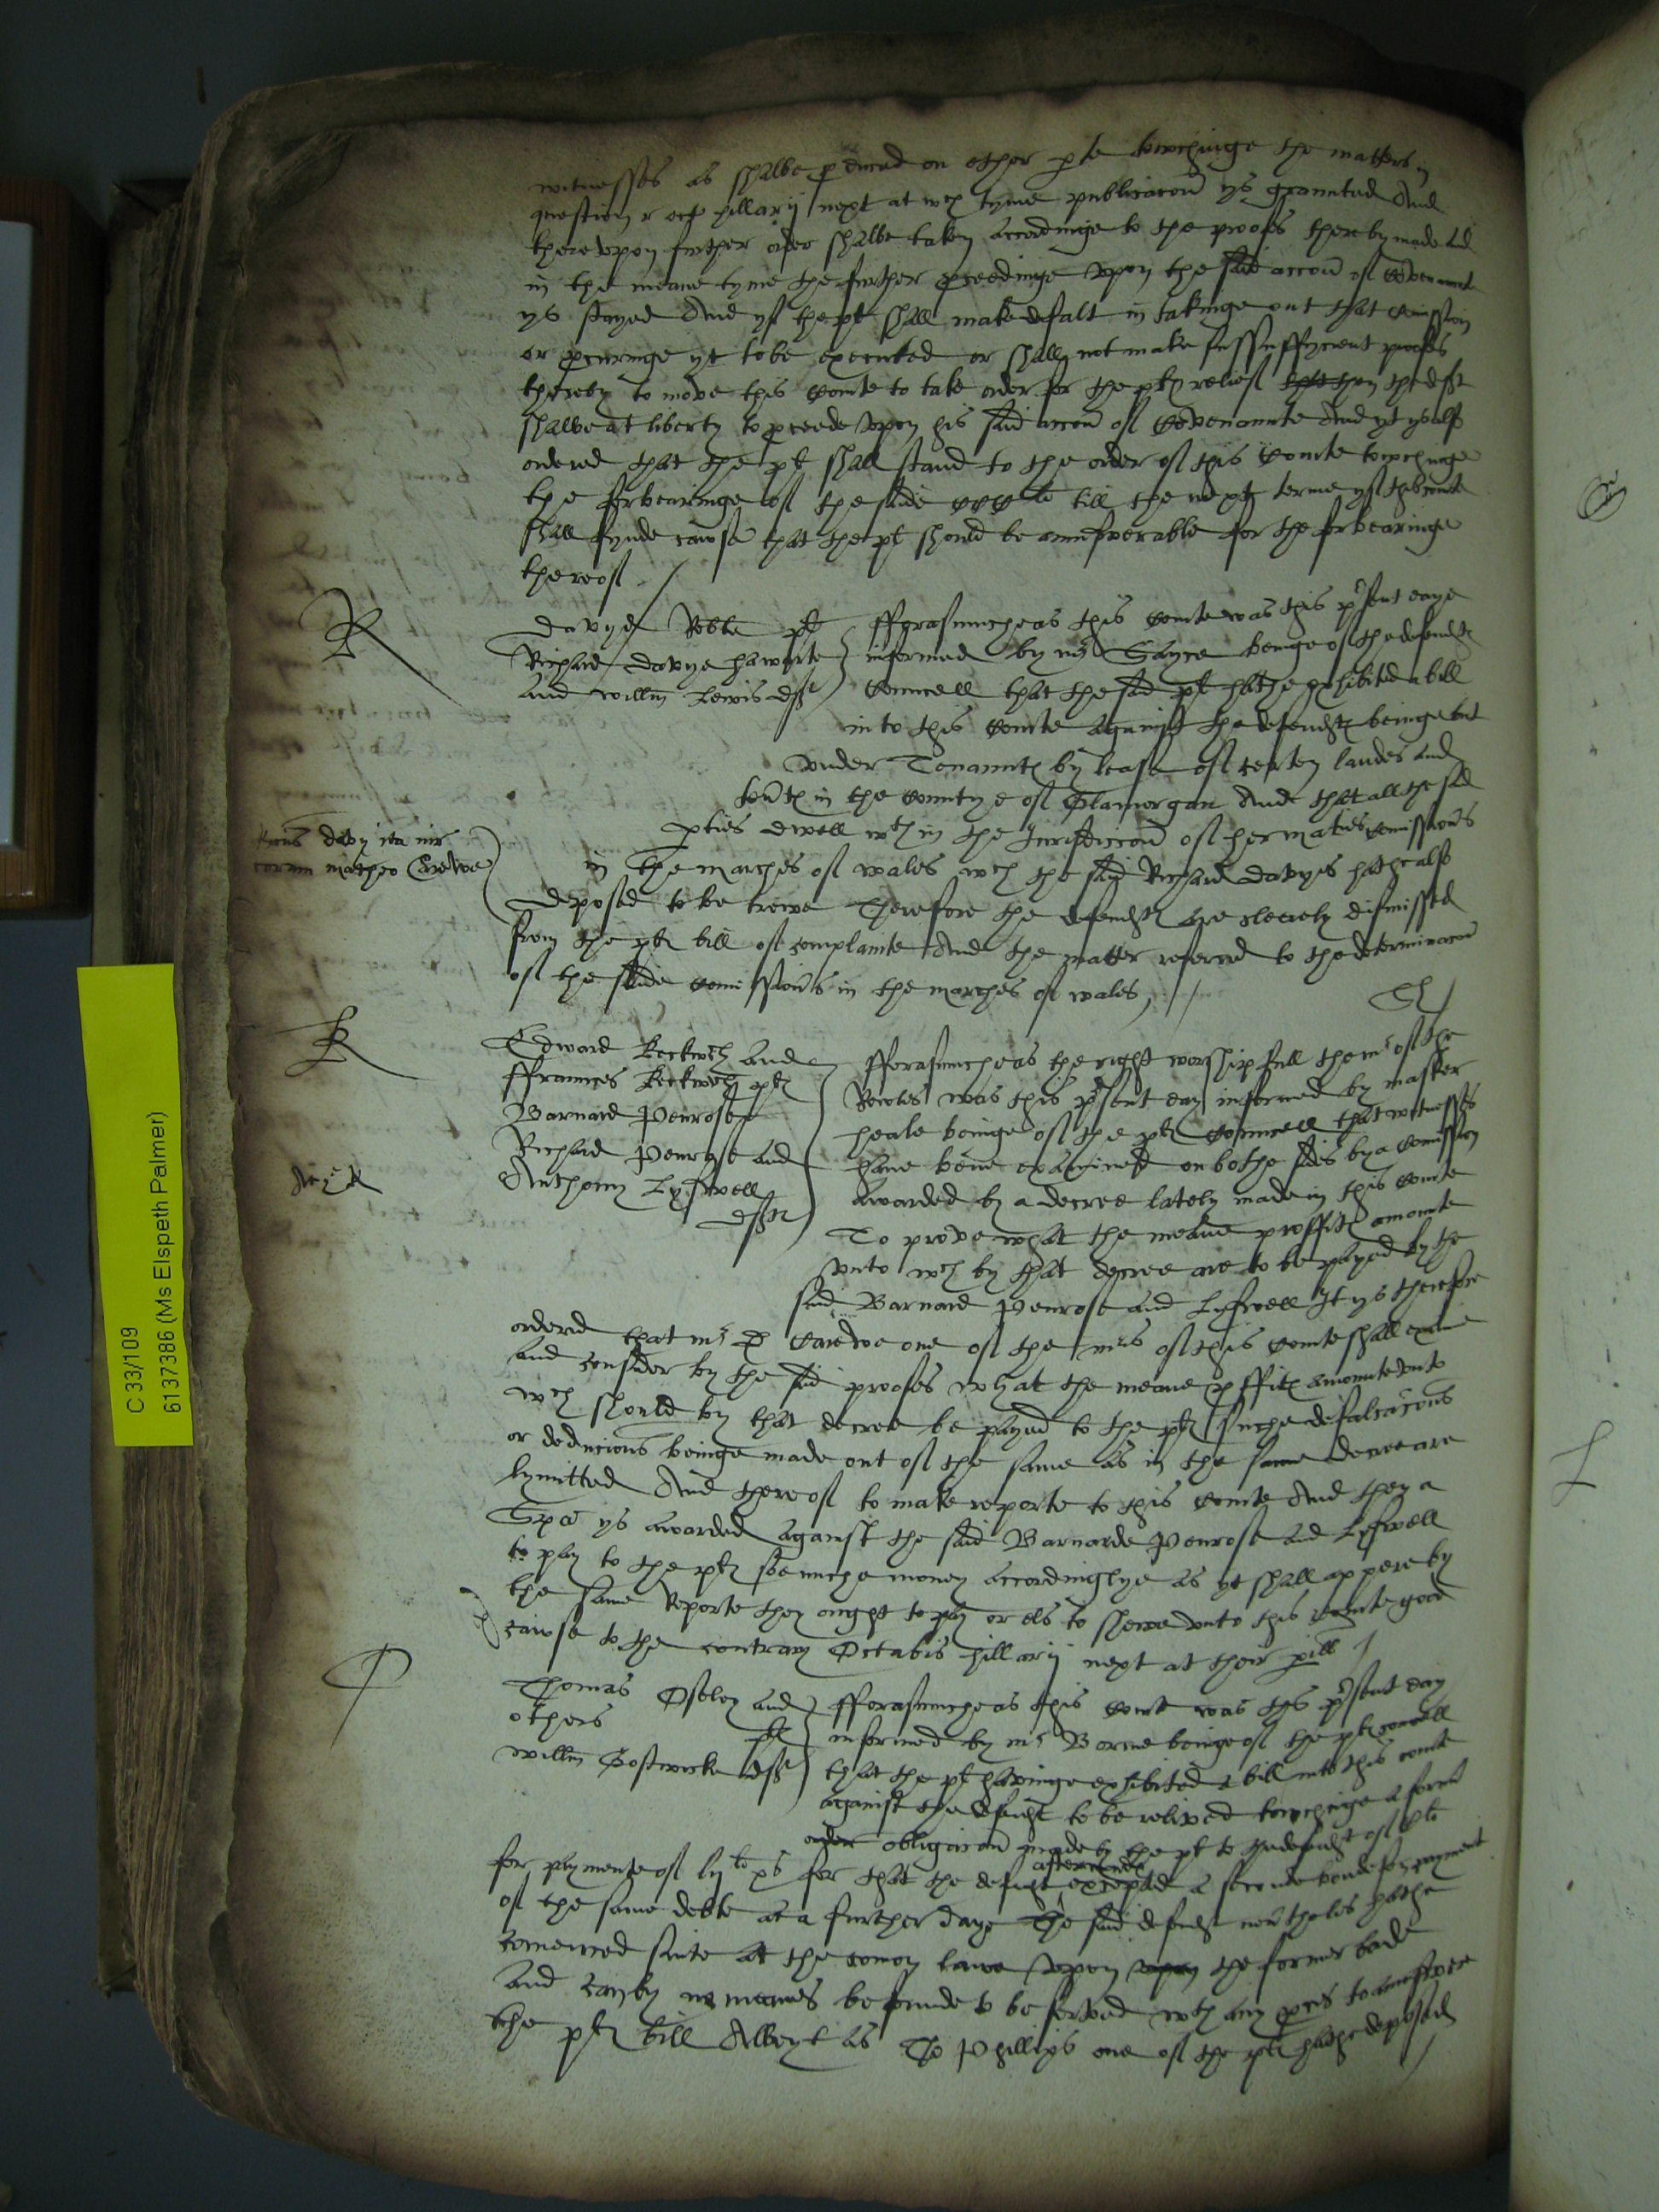 witnesses as shalbe produced on ether pte towchinge the matters in
question r oct hillarij next at wch tyme publicacon ys graunted And
thereupon further order shalbe taken accordinge to the proofes thereby made And
in the meane tyme the further proceedinge upon the said accon of Covenant
ys stayed And yf the pt shall make defalt in takinge out that Comission
or procuringe yt to be executed or shall not make suffycient proofes
thereby to move this Courte to take order for the pts relief then the deft
shalbe at liberty to proceede upon his said accon of Covenannte And yt ys also
ordered that the pt shall stand to the order of this Courte towchinge
the forbearinge of the saide CCC li till the next terme yf this courte
shall fynde cawse that the pt should be annswerable for the forbearinge
thereof
R
Davyd Noble pt
Richard Davye
and Willm Lewis defts
fforasmucheas this Courte was this psent daye
informed by mr Sayce beinge of the defendts
Councell that the said pt hathe exhibited a bill
into this Courte against the defendts beinge but
under Tenannts by lease of certen landes and
tents in the Countye of Glamorgan And that all the said
pties dwell wthin the Jurisdiccon of her maties Comissioners
in the marches of wales wch the said Richard Davys hathe also
deposed to be trewe Therefore the defendts are cleerely dismissed
from the pts bill of complainte And the matter referred to the determinacon
of the saide Comissioners in the marches of wales
Davy
coram matheo Carewe
R
Edward Beckwth and
ffraunces Beckwth pts
Barnard Penrose
Richard Penrose and
Anthony Lyswell
defts
fforasmucheas the right worshipfull the mr of the
Rowles was this psent day informed by master
heale beinge of the pts Councell that witnesses
have bene examined on bothe sides by a Comission
awarded by a decree lately made in this Courte
To prove what the meane proffitts amounte
unto wch by that decree are to be payed by the
said Barnard Penrose and Lyswell It ys therefore
ordered that mr D Carewe one of the mrs of this Courte shall examine
and consider by the said proofes what the meane pffitts amounte unto
wch should by that decree be payed to the pts suche defalcacons
or deducions beinge made out of the same as in the same decree are
lymitted And thereof to make reporte to this Courte And then a
Spa ys awarded against the said Barnarde Penrose and Lyswell
to pay to the pts soe muche money accordinglye as yt shall appere by
the same Reporte they ought to pay or els to shewe unto this Courte good
cawse to the contrary Octabis hillarij next at their pill
Thomas Oseley and
others pts
Willm Bostwicke deft
fforasmucheas this Court was this psent day
informed by mr Borne beinge of the pts councell
that the pt havinge exhibited a bill into this courte
against the defendt to be relived towchinge a former
obligacon made by the pt to the defendt of li
for paymente of for that the defendt afterwards excepted a seconde bonde for payment
of the same debte at a further daye The said defendt nevertheles hathe
comenced suite at the comon lawe upon the former bande
and can by no meanes be founde to be served wth any pces to annswere
the pts bill Albeyt as Tho Phillips one of the pts hathe deposed
C 33/109
6137386 (Ms Elspeth Palmer)